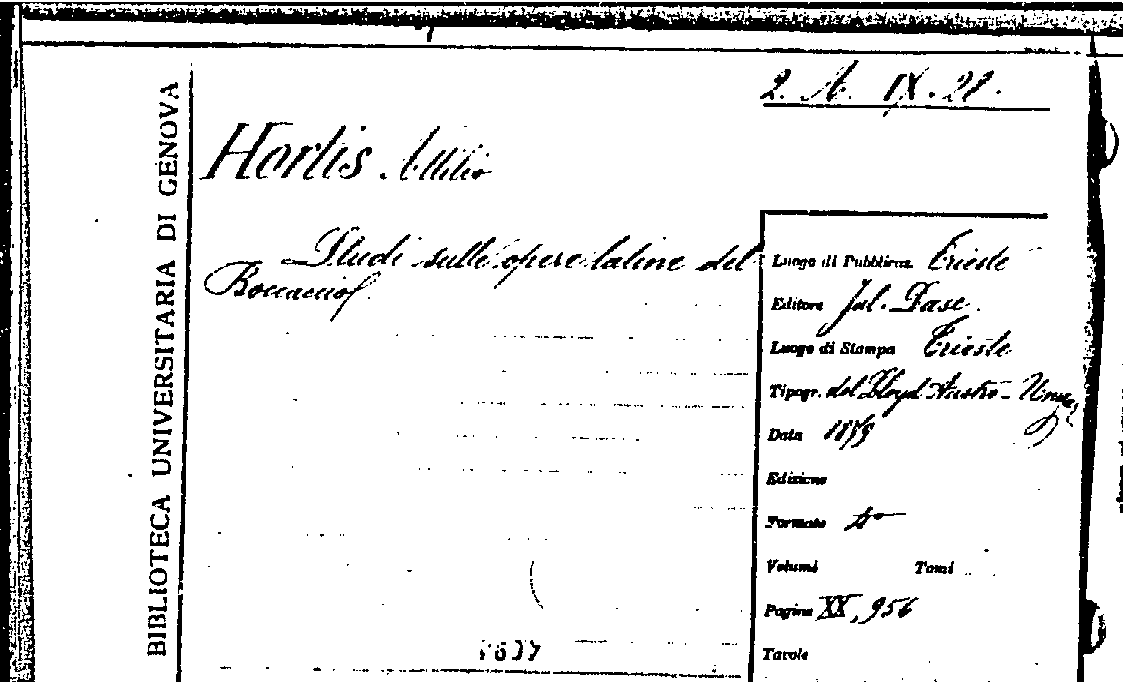 BIBLIOTECA UNIVERSITARIA DI GENOVA
2. A. IX. 21.
Hortis Attilio
Studi sulle opere latine del
Boccaccio
Luogo di Pubblicaz. Trieste
Editore Jul. Dase.
Luogo di Stampa Trieste
Tipogr. del Lloyd Austro-
Data 1879
Edizione
Formato 4º
Volumi Tomi
Pagine XX, 956
Tavole